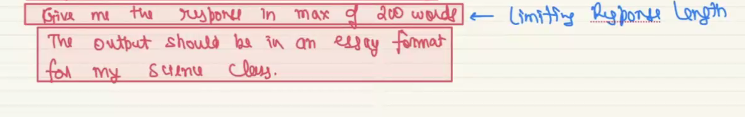 Give me the response in max of 200 words ← Limiting Response Length
The output should be in an essay format
for my science class.